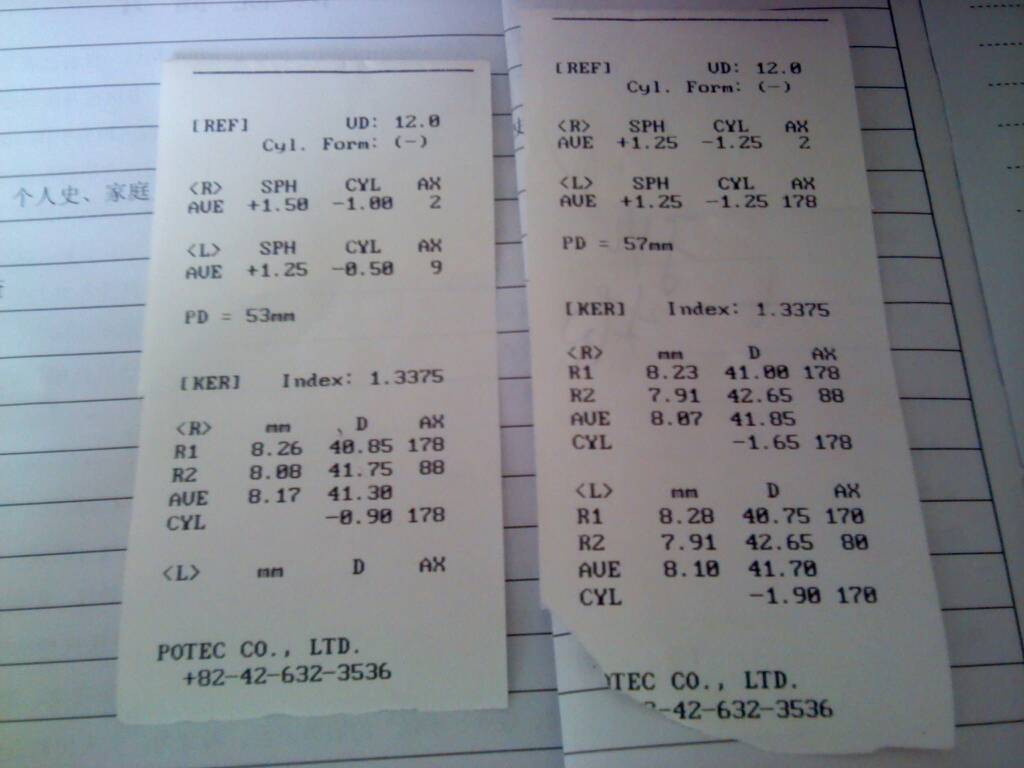 个人史、家庭
[REF] VD: 12.0
Cyl. Form: (-)
<R> SPH CYL AX
AVE +1.50 -1.00 2
<L> SPH CYL AX
AVE +1.25 -0.50 9
PD = 53mm
[KER] Index: 1.3375
<R> mm D AX
R1 8.26 40.85 178
R2 8.08 41.75 88
AVE 8.17 41.30
CYL -0.90 178
<L> mm D AX
POTEC CO., LTD.
+82-42-632-3536
[REF] VD: 12.0
Cyl. Form: (-)
<R> SPH CYL AX
AVE +1.25 -1.25 2
<L> SPH CYL AX
AVE +1.25 -1.25 178
PD = 57mm
[KER] Index: 1.3375
<R> mm D AX
R1 8.23 41.00 178
R2 7.91 42.65 88
AVE 8.07 41.85
CYL -1.65 178
<L> mm D AX
R1 8.28 40.75 170
R2 7.91 42.65 80
AVE 8.10 41.70
CYL -1.90 170
OTEC CO., LTD.
2-42-632-3536